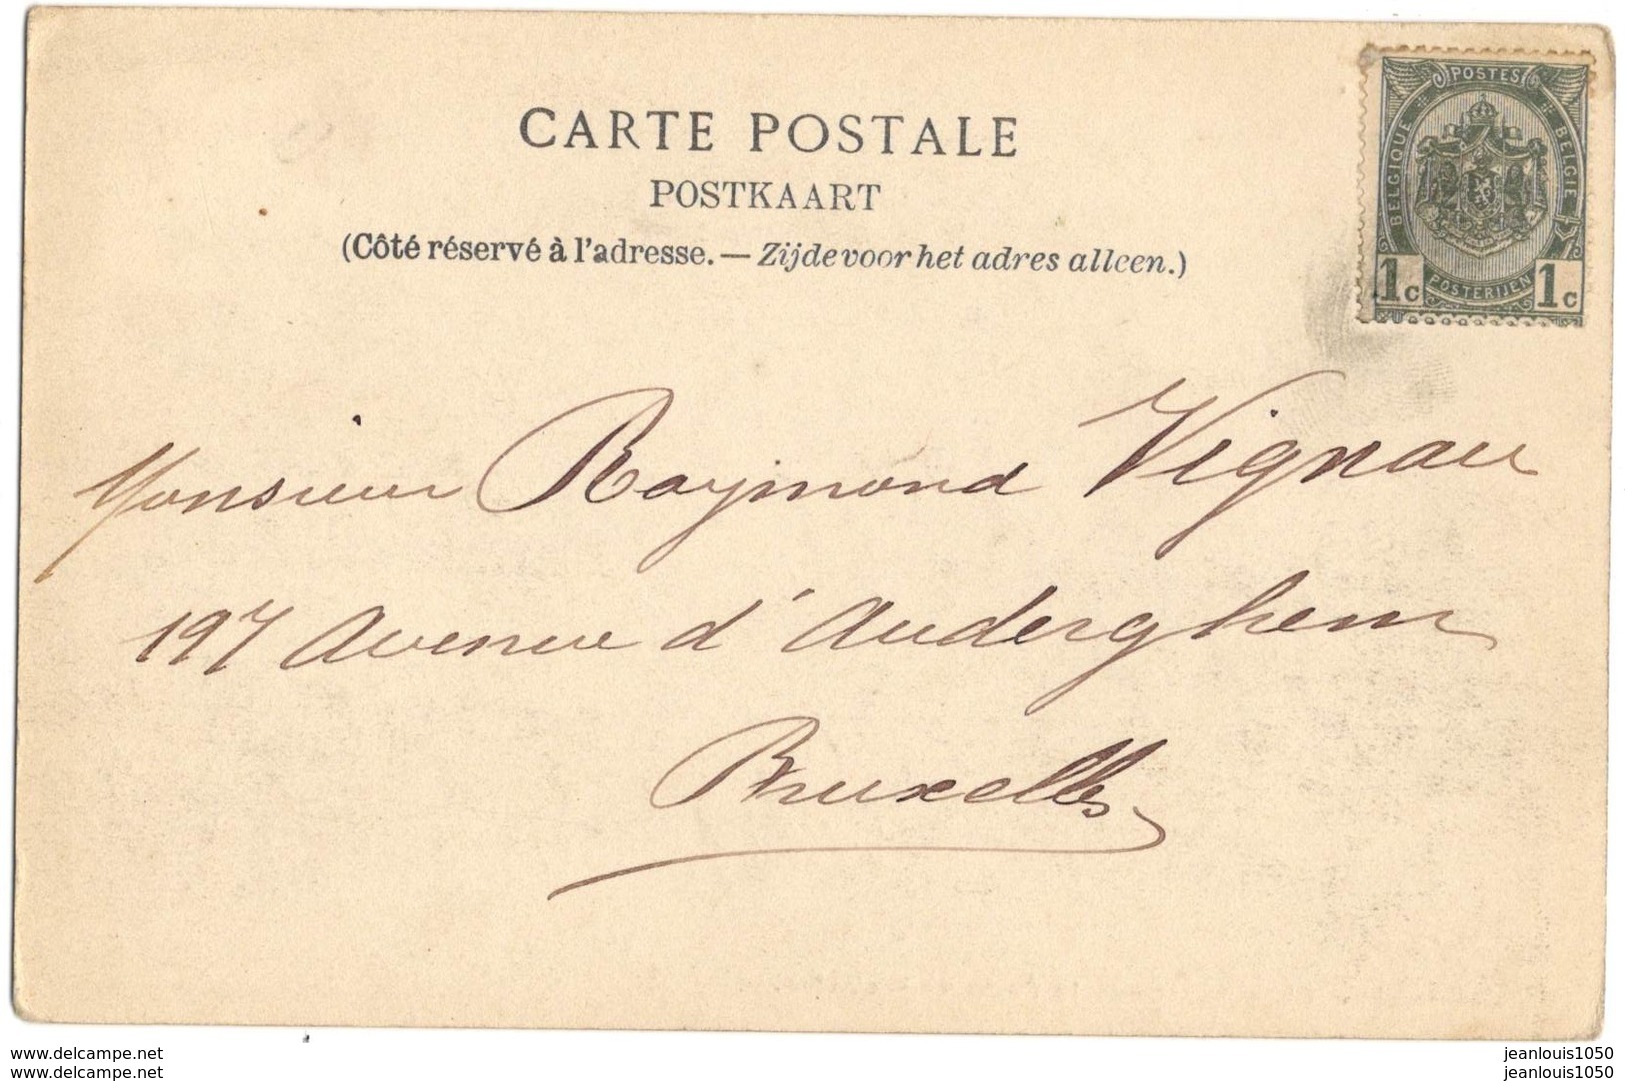 CARTE POSTALE
POSTKAART
(Côté réservé à l'adresse. — Zijde voor het adres alleen.)
POSTES
BELGIQUE
BELGIË
POSTERIJEN
1c 1c
Monsieur Raymond Vignau
197 Avenue d'Auderghem
Bruxelles
www.delcampe.net
www.delcampe.net
jeanlouis1050
jeanlouis1050